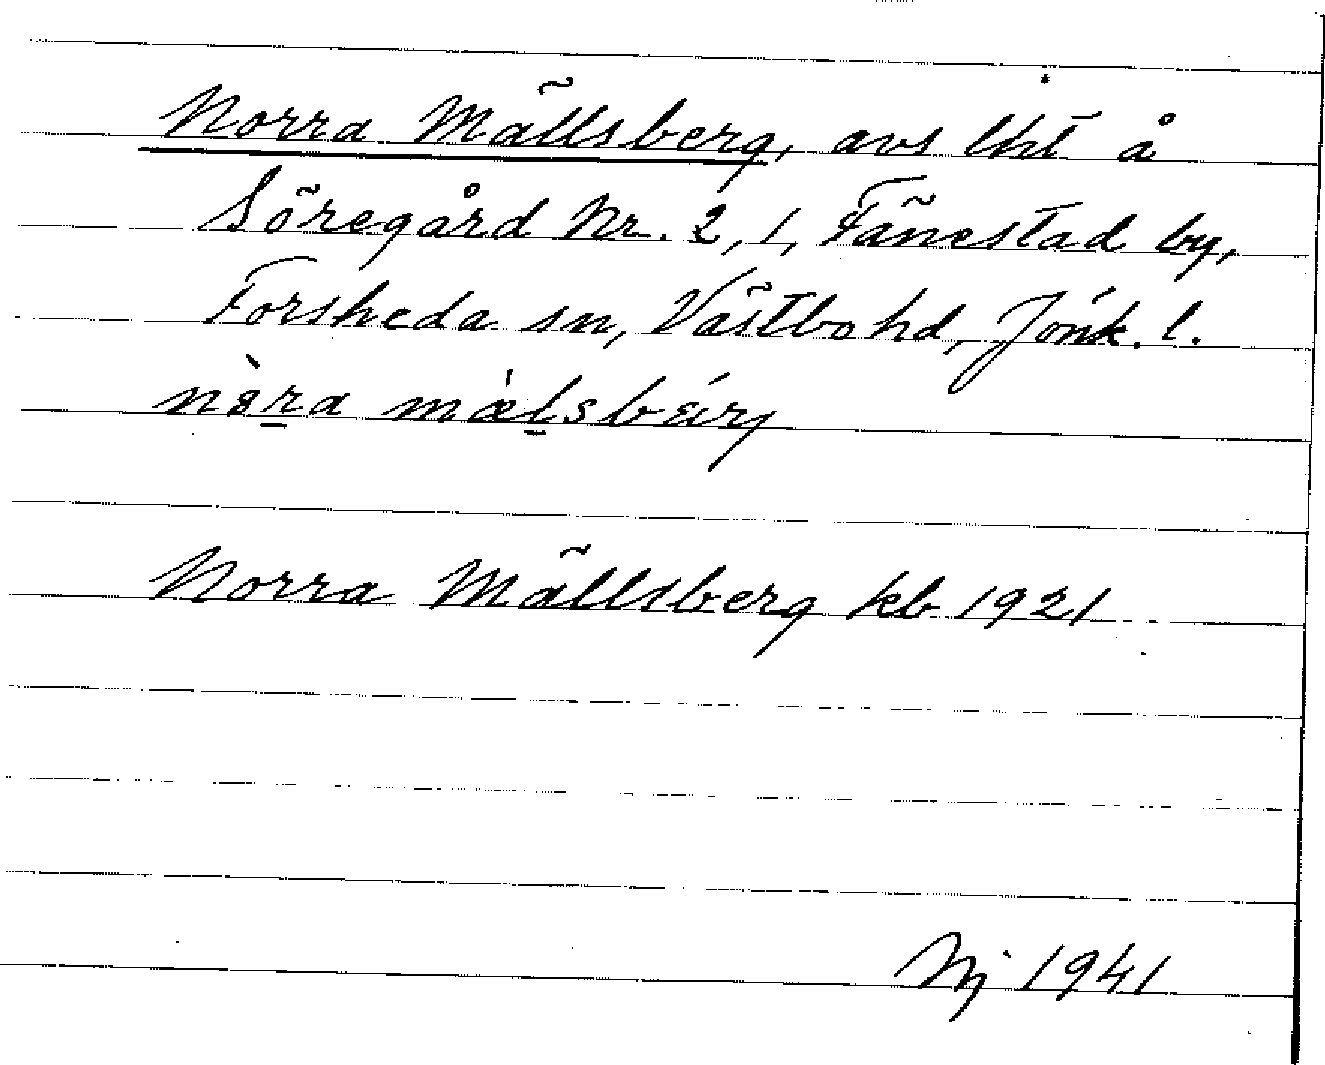 Norra Mällsberg, avs lht å
Söregård Nr. 2, 1, Fänestad by,
Forsheda sn, Västbo hd, Jönk. l.
nòra mǽlsbærj
Norra Mällsberg kb 1921
Nj 1941